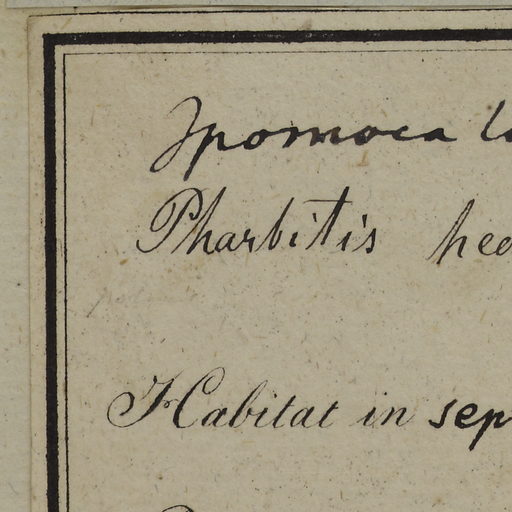 Ipomoea
Pharbitis hed
Habitat in sep